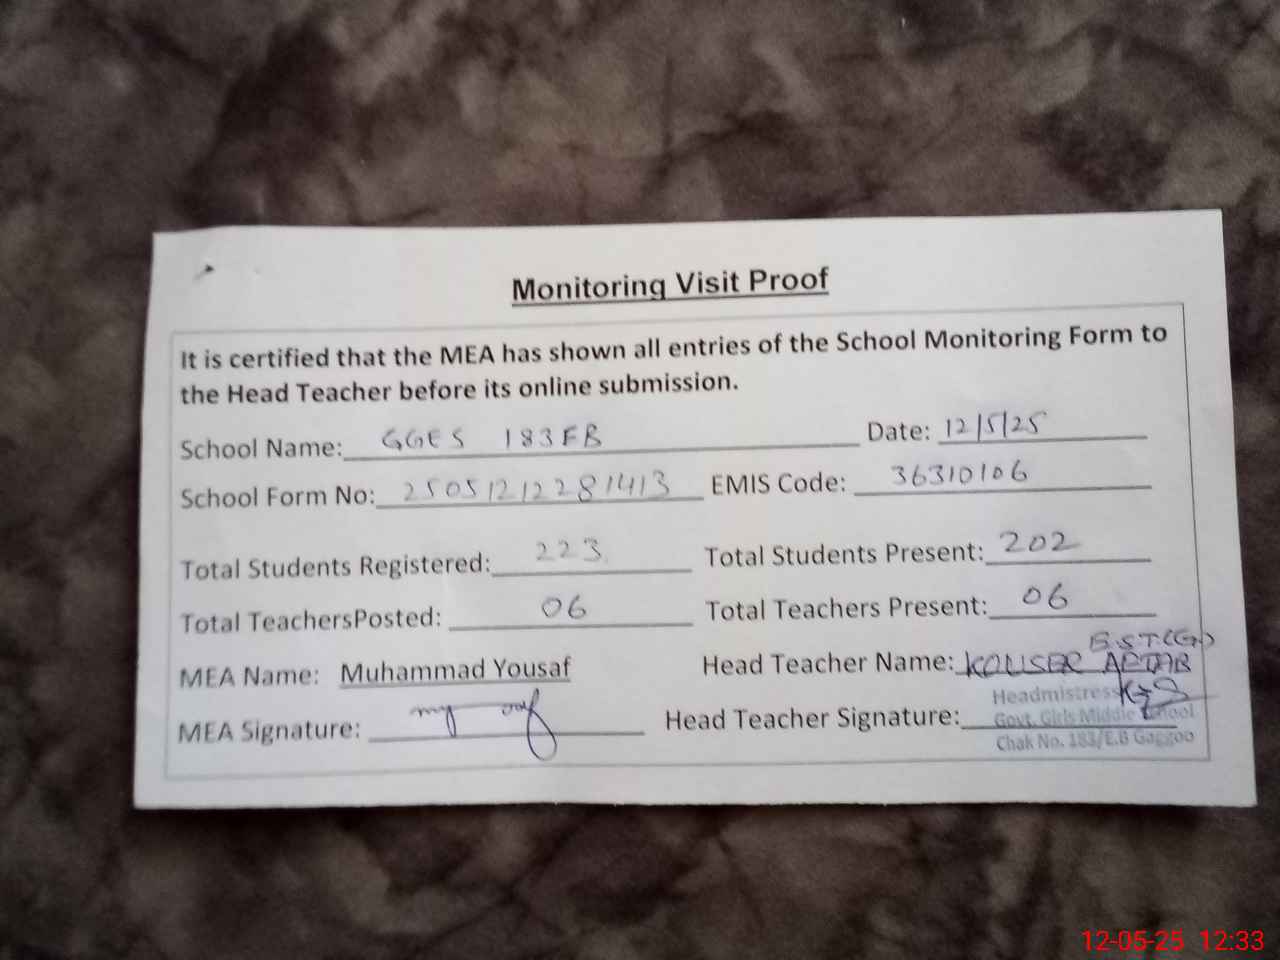 Monitoring Visit Proof
It is certified that the MEA has shown all entries of the School Monitoring Form to
the Head Teacher before its online submission.
School Name: GGES 183EB Date: 12/5/25
School Form No: 25051212281413 EMIS Code: 36310106
Total Students Registered: 223 Total Students Present: 202
Total TeachersPosted: 06 Total Teachers Present: 06
E.S.T.(G)
MEA Name: Muhammad Yousaf Head Teacher Name: KOUSER AFTAB
Headmistress
MEA Signature: Head Teacher Signature: Govt. Girls Middle School
Chak No. 183/E.B Gaggoo
12-05-25 12:33